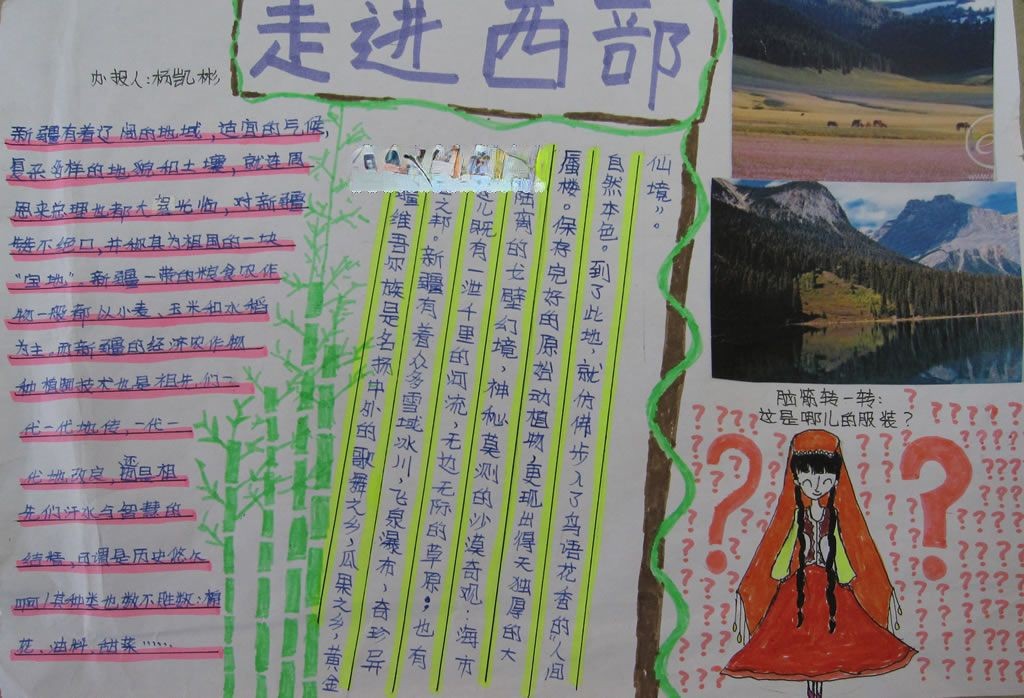 走进西部
办报人:杨凯彬
新疆有着辽阔的地域，适宜的气候，
复杂多样的地貌和土壤，就连周
恩来总理也都大驾光临，对新疆
赞不绝口，并称其为祖国的一块
“宝地”。新疆一带的粮食农作
物一般都以小麦、玉米和水稻
为主，而新疆的经济农作物
种植期技术也是祖先们一
代一代地传，一代一
代地改良，还是祖
先们汗水与智慧的
结晶，可谓是历史悠久
啊！其种类也数不胜数：棉
花、油料、甜菜……
疆维吾尔族是名扬中外的歌舞之乡，瓜果之乡，黄金
之邦。新疆有着众多雪域冰川，飞泉瀑布，奇珍异
儿既有一泄千里的河流，无边无际的草原；也有
陆离的戈壁幻境，神秘莫测的沙漠奇观：海市
蜃楼。保存完好的原始动植物更现出得天独厚的大
自然本色。到了此地，就仿佛步入了鸟语花香的“人间
仙境”。
脑筋转一转：
这是哪儿的服装？